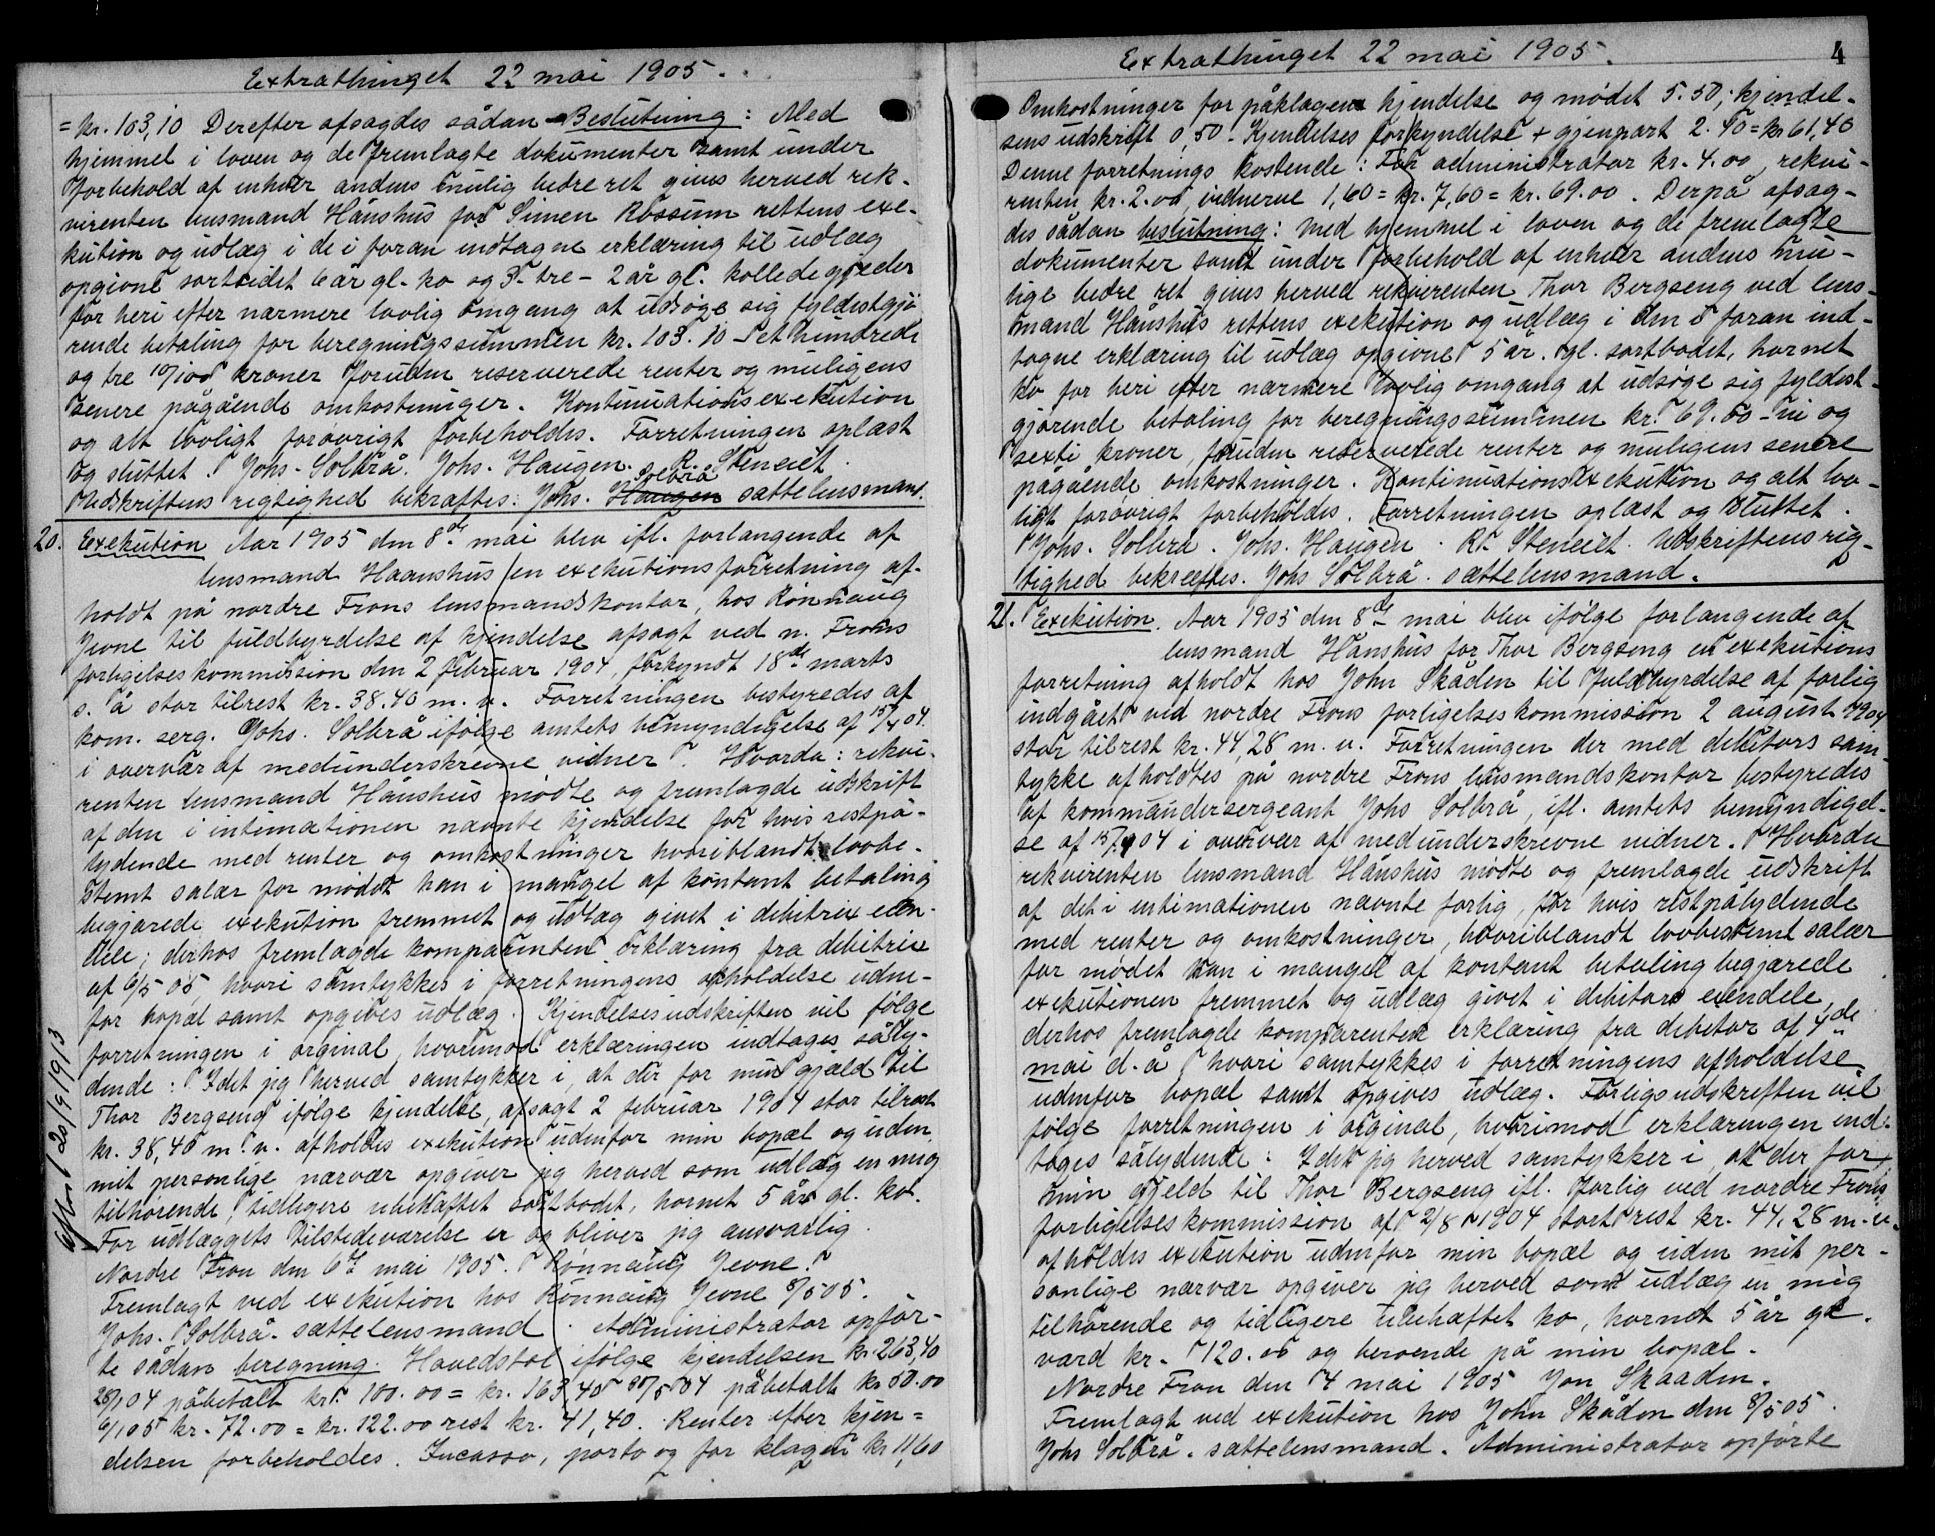 Extrathinget 22 mai 1905.
= kr. 103,10 Derefter afsagdes sådan Beslutning: Med
hjemmel i loven og de fremlagte dokumenter samt under
forbehold af enhver andens mulig bedre ret gives herved rek-
virenten lensmand Hånshus for Simen Rossum rettens exe-
kution og udlæg i de i foran indtagne erklæring til udlæg
opgivne sortsidet 6 år gl. ko og 3 - tre - 2 år gl. kollede gjeder
for heri efter nærmere lovlig omgang at udsøge sig fyldestgjø
rende betaling for beregningssummen kr. 103.10 - et hundrede
og tre 10/100 kroner foruden reserverede renter og muligens
senere pågående omkostninger. Kontinuationsexekution
og alt lovligt forøvrigt forbeholdes. Forretningen oplæst
og sluttet. Johs. Solbrå. Johs. Haugen. R. Steneiet.
Solbrå
Udskriftens rigtighed bekræftes: Johs. Haugen sættelensmand.
20. Exekution Aar 1905 den 8de mai blev ifl. forlangende af
lensmand Haanshus en exekutionsforretning af-
holdt på nordre Frons lensmandskontor, hos Rønnaug
Jevne til fuldbyrdelse af kjendelse afsagt ved n. Frons
forligelseskommission den 2 februar 1904, forkyndt 18de marts
s. å stor tilrest kr. 38.40 m. v. Forretningen bestyredes af
kom. serg. Johs. Solbrå ifølge amtets bemyndigelse af 15/4 04.
i overvær af medunderskrevne vidner. Hvorda: rekvi-
renten lensmand Hånshus mødte og fremlagde udskrift
af den i intimationen nævnte kjendelse for hvis restpå-
lydende med renter og omkostninger hvoriblandt lovbe-
stemt salær for mødet han i mangel af kontant betaling
begjærede exekution fremmet og udlæg givet i debitrix eien-
dele; derhos fremlagde komparenten erklæring fra debitrix
af 6/5 05, hvori samtykkes i forretningens afholdelse uden-
for bopæl samt opgives udlæg. Kjendelsesudskriften vil følge
forretningen i orginal, hvorimod erklæringen indtages såly-
dende: Idet jeg herved samtykker i, at der for min gjæld til
Thor Bergseng ifølge kjendelse, afsagt 2 februar 1904 stor tilrest
kr. 38,40 m. v. afholdes exekution udenfor min bopæl og uden
mit personlige nærvær opgiver jeg herved som udlæg en mig
tilhørende, tidligere ubehæftet sortbodet, hornet 5 års gl. ko.
For udlæggets tilstedeværelse er og bliver jeg ansvarlig.
Nordre Fron den 6te mai 1905. Rønnaug Jevne.
Fremlagt ved exekution hos Rønnaug Jevne 8/5 05.
Johs. Solbrå. sættelensmand. Administrator opfør-
te sådan beregning. Hovedstol ifølge kjendelsen kr. 263,40
28/1 04 påbetalt kr. 100.00 = kr. 163,40 30/5 04 påbetalt kr 50.00
6/1 05 kr. 72.00 = kr. 122.00 rest kr. 41,40. Renter efter kjen=
delsen forbeholdes. Incasso, porto og for klagen kr 11,60
Aflæst 20/9 1913
Extrathinget 22 mai 1905.
4
Omkostninger for påklagen kjendelse og mødet 5.50; kjendel-
sens udskrift 0,50 - Kjendelses forkyndelse + gjenpart 2.40 = kr 61,40
Denne forretnings kostende: For administrator kr. 4.00, rekvi-
renten kr. 2.00, vidnerne 1,60 = kr. 7,60 = kr. 69.00. Derpå afsag-
des sådan beslutning: Med hjemmel i loven og de fremlagte
dokumenter samt under forbehold af enhver andens mu-
lige bedre ret gives herved rekverenten Thor Bergseng ved lens-
mand Hånshus rettens exekution og udlæg i den i foran ind-
tagne erklæring til udlæg opgivne 5 år. gl. sortbodet, hornet
ko for heri efter nærmere lovlig omgang at udsøge sig fyldest-
gjørende betaling for beregningssummen kr. 69.00 - ni og
sexti kroner, foruden reserverede renter og muligens senere
pågående omkostninger. Kontinuationsexekution og alt lov-
ligt forøvrigt forbeholdes. Forretningen oplæst og sluttet.
Johs. Solbrå. Johs. Haugen. R. Steneiet. Udskriftens rig-
tighed bekræftes. Johs Solbrå. sættelensmand.
21. Exekution. Aar 1905 den 8de mai blev ifølge forlangende af
lensmand Hånshus for Thor Bergseng en exekutions
forretning afholdt hos John Skåden til fuldbyrdelse af forlig
indgået ved nordre Frons forligelseskommission 2 august 1904
stor tilrest kr. 44,28 m. v. Forretningen der med debitors sam
tykke afholdtes på nordre Frons lensmandskontor bestyredes
af kommandersergeant Johs Solbrå, ifl. amtets bemyndigel-
se af 15/4 04 i overvær af medunderskrevne vidner. Hvorda
rekvirenten lensmand Hånshus mødte og fremlagde udskrift
af det i intimationen nævnte forlig, for hvis restpålydende
med renter og omkostninger, hvoriblandt lovbestemt salær
for mødet han i mangel af kontant betaling begjærede
exekutionen fremmet og udlæg givet i debitors eiendele,
derhos fremlagde komparenten erklæring fra debitor af 4de
mai d. å hvori samtykkes i forretningens afholdelse
udenfor bopæl samt opgives udlæg. Forligsudskriften vil
følge forretningen i orginal, hvorimod erklæringen ind-
tages sålydende: Idet jeg herved samtykker i, at der for
min gjeld til Thor Bergseng ifl. forlig ved nordre Frons
forligelseskommission af 2/8 1904 stort rest kr. 44,28 m. v.
afholdes exekution udenfor min bopæl og uden mit per-
sonlige nærvær opgiver jeg herved som udlæg en mig
tilhørende og tidligere ubehæftet ko, hornet 5 år gl.
værd kr. 120.00 og beroende på min bopæl.
Nordre Fron den 4 mai 1905 Jon Skaaden.
Fremlagt ved exekution hos John Skåden den 8/5 05.
Johs Solbrå. sættelensmand. Administrator opførte